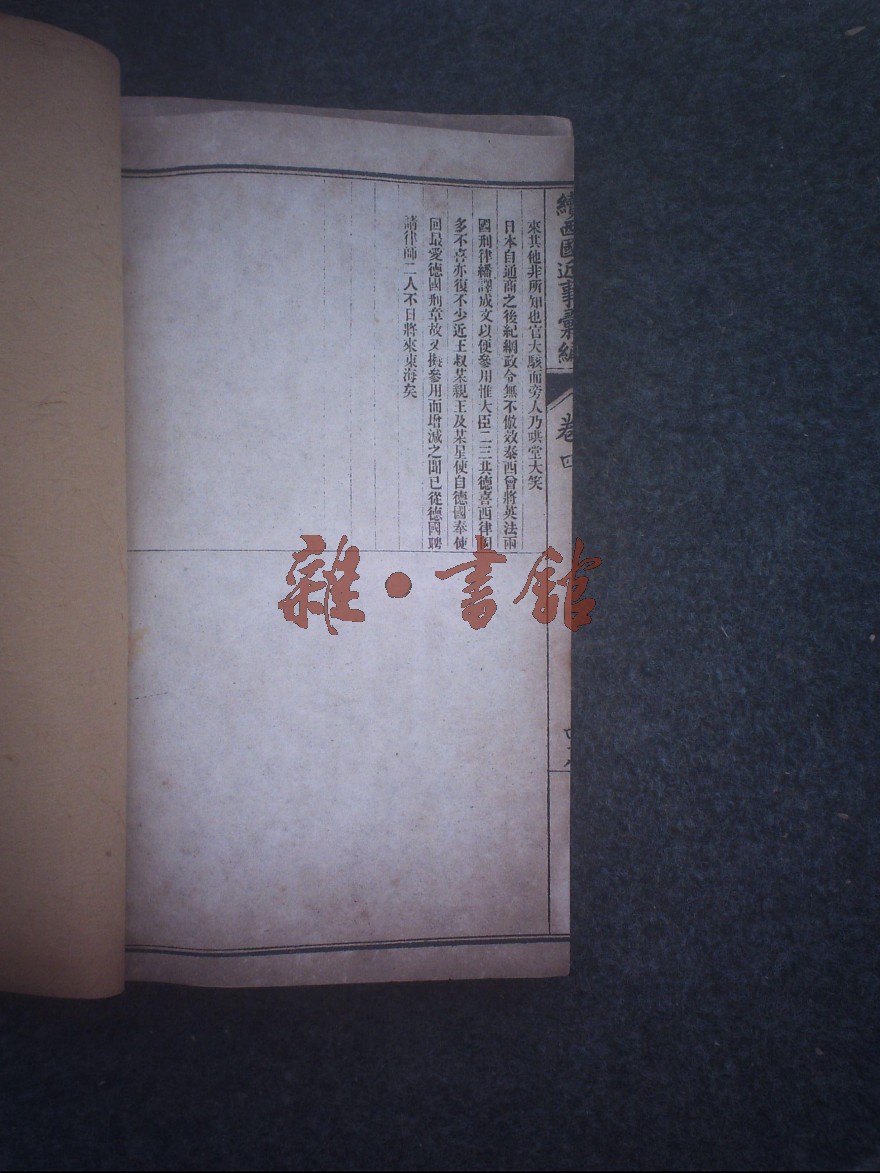 續西國近事彙編
卷四
來其他非所知也官大駭而旁人乃哄堂大笑
日本自通商之後紀綱政令無不倣效泰西曾將英法兩
國刑律繙譯成文以便參用惟大臣二三其德喜西律固
多不喜亦復不少近王叔某親王及某星使自德國奉使
回最愛德國刑章故又擬參用而增減之聞已從德國聘
請律師二人不日將來東海矣
雜·書館